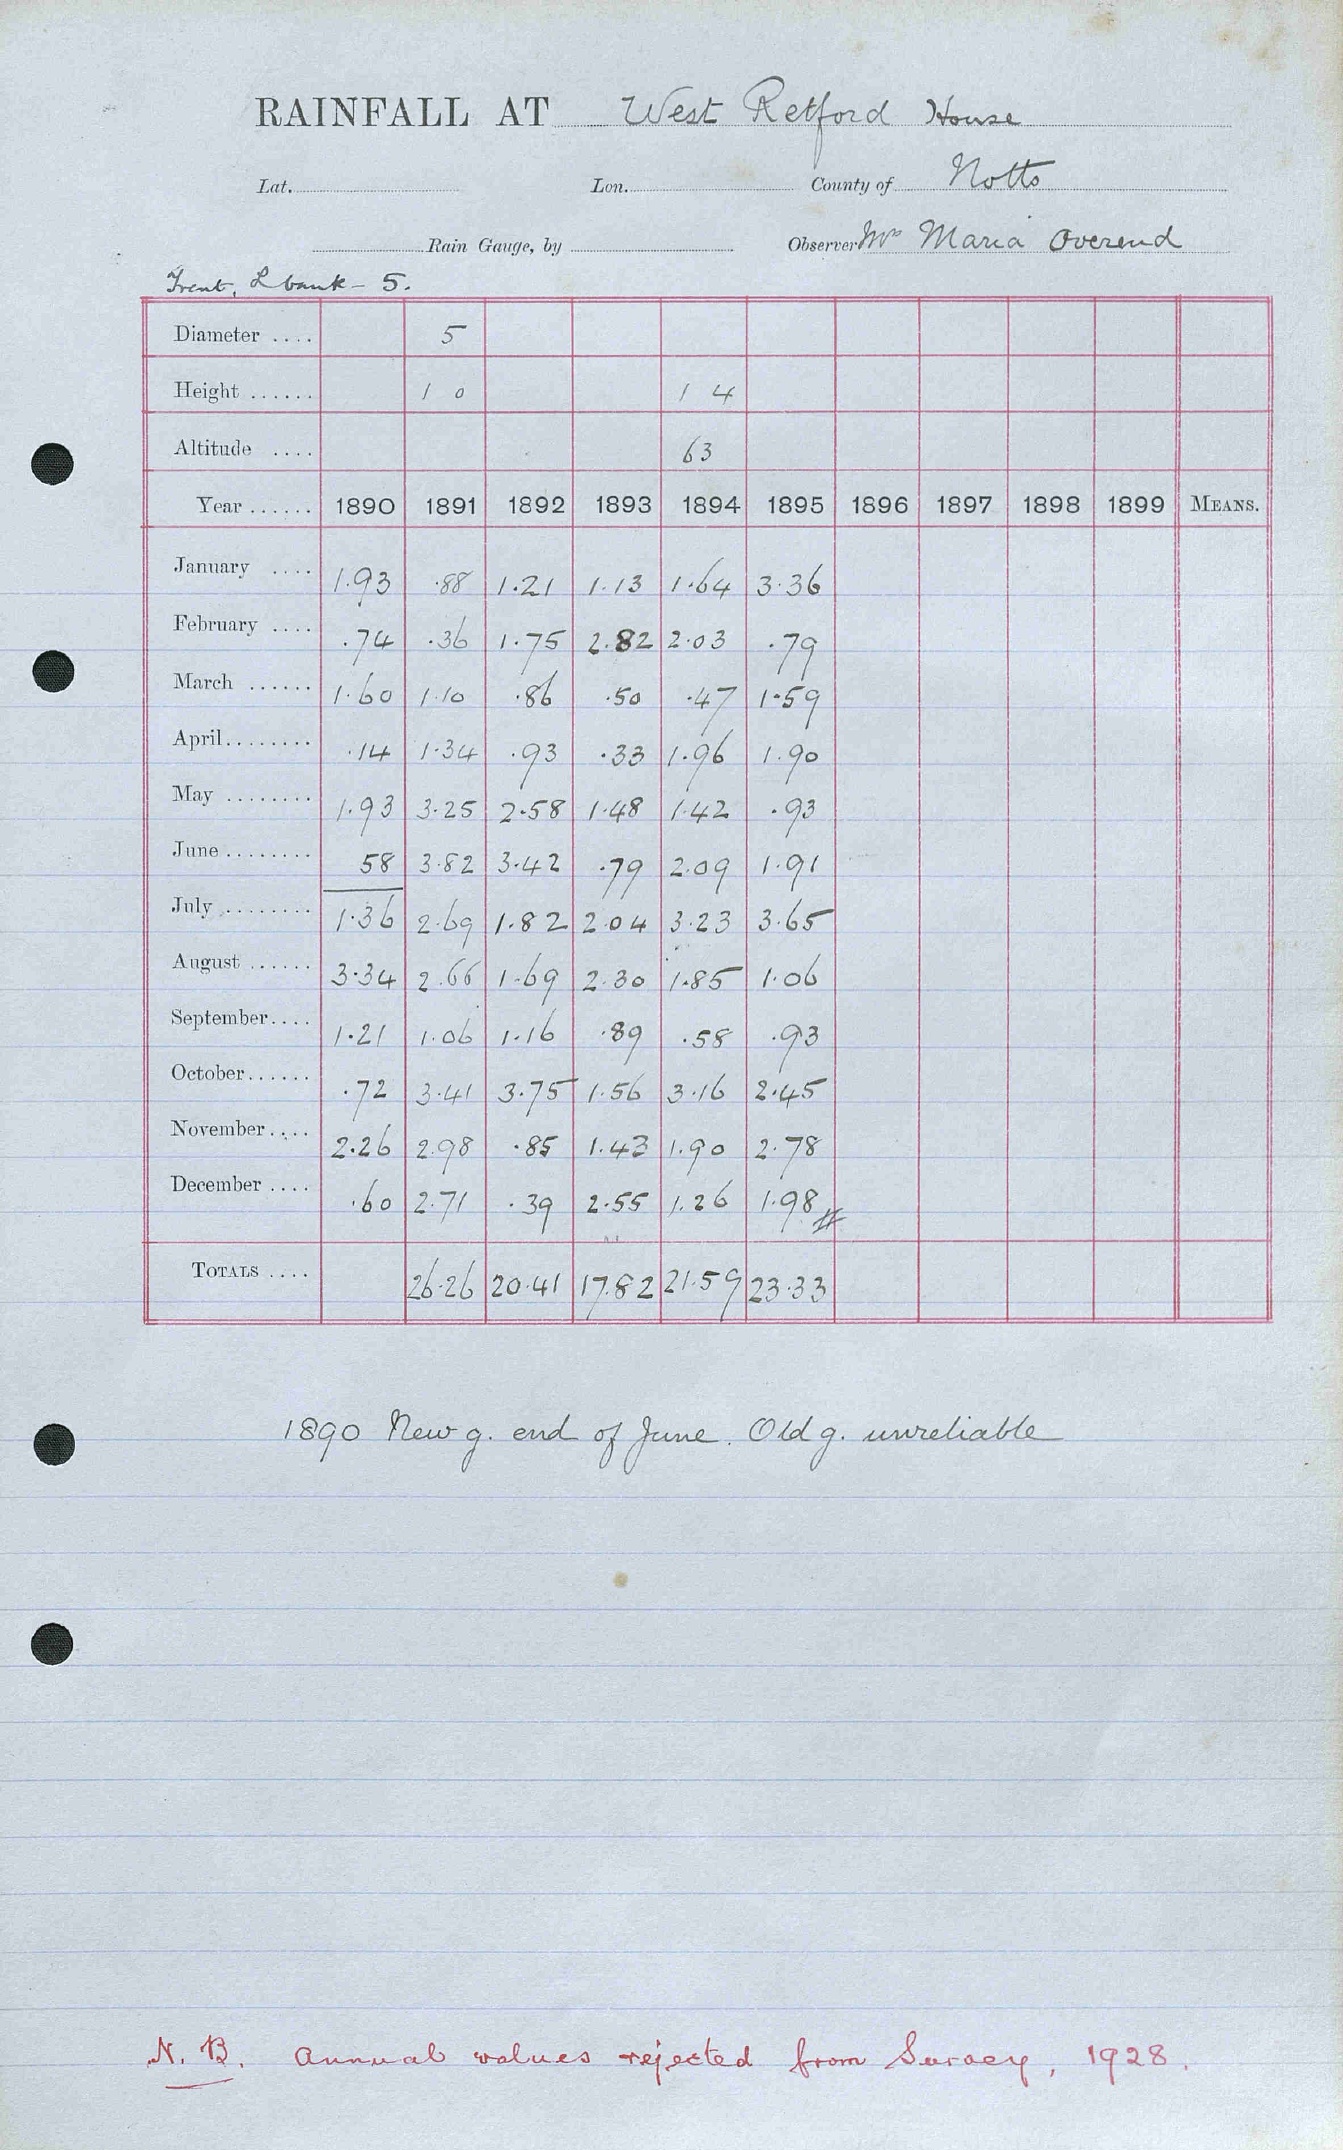 RAINFALL AT West Retford House
Lat. Lon. County of Notts
Rain Gauge, by Observer Mrs Maria Overend
Trent, L bank - 5.
Diameter .... 5
Height ...... 1 0 1 4
Altitude .... 63
Year ...... 1890 1891 1892 1893 1894 1895 1896 1897 1898 1899 MEANS.
January .... 1.93 .88 1.21 1.13 1.64 3.36
February .... .74 .36 1.75 2.82 2.03 .79
March ...... 1.60 1.10 .86 .50 .47 1.59
April........ .14 1.34 .93 .33 1.96 1.90
May ........ 1.93 3.25 2.58 1.48 1.42 .93
June ........ 58 3.82 3.42 .79 2.09 1.91
July ........ 1.36 2.69 1.82 2.04 3.23 3.65
August ...... 3.34 2.66 1.69 2.30 1.85 1.06
September.... 1.21 1.06 1.16 .89 .58 .93
October...... .72 3.41 3.75 1.56 3.16 2.45
November.... 2.26 2.98 .85 1.43 1.90 2.78
December .... .60 2.71 .39 2.55 1.26 1.98 #
TOTALS .... 26.26 20.41 17.82 21.59 23.33
1890 New g. end of June. Old g. unreliable
N. B. Annual values rejected from Survey, 1928.